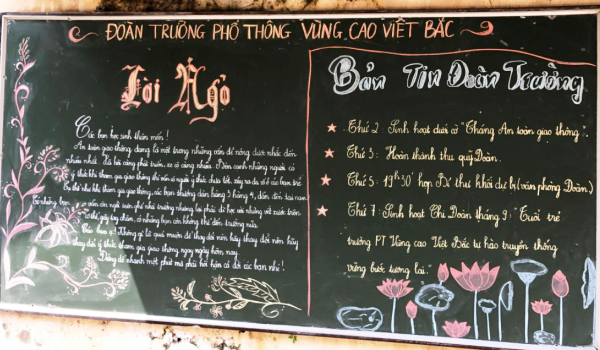 ĐOÀN TRƯỜNG PHỔ THÔNG VÙNG CAO VIỆT BẮC
Lời Ngỏ
Các bạn học sinh thân mến!
An toàn giao thông đang là một trong những vấn đề nóng được nhắc đến
nhiều nhất. Xã hội càng phát triển, xe cộ càng nhiều. Bên cạnh những người có
ý thức khi tham gia giao thông thì vẫn có người ý thức chưa tốt, xảy ra đa số ở các bạn trẻ
những bạn vẫn còn ngồi trên ghế nhà trường nhưng lại phải đi học với những vết xước trên
cơ thể, gãy tay chân, có những bạn còn không thể đến trường nữa.
Các bạn ạ! Không gì là quá muộn để thay đổi nên hãy thay đổi nên hãy
thay đổi ý thức tham gia giao thông ngay ngày hôm nay.
Đừng để nhanh một phút mà phải hối hận cả đời các bạn nhé!
Bản Tin Đoàn Trường
Thứ 2: Sinh hoạt dưới cờ "Tháng An toàn giao thông".
Thứ 3: Hoàn thành thu quỹ Đoàn.
Thứ 5: 19h30' họp Bí thư khối dự bị (văn phòng Đoàn.)
Thứ 7: Sinh hoạt Chi Đoàn tháng 9: "Tuổi trẻ
trường PT Vùng cao Việt Bắc tự hào truyền thống
vững bước tương lai."